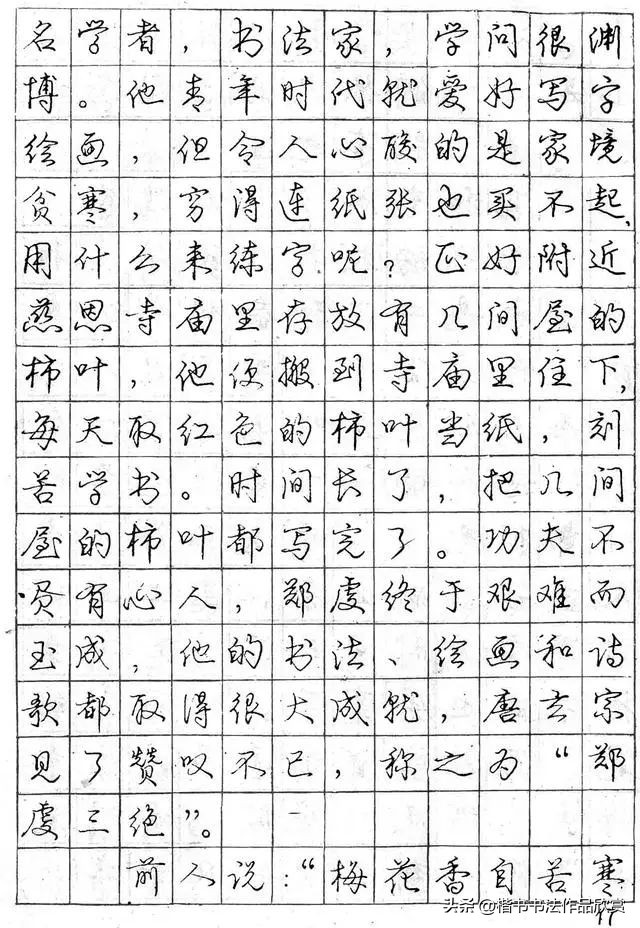 名学者，书法家，学问很渊
博。他青年时代就爱好写字
绘画，但令人心酸的是家境
贫寒，穷得连纸张也买不起，
用什么来练字呢？正好附近
慈恩寺庙里存放有几间屋的
柿叶，他便搬到寺庙里住下，
每天取红色的柿叶当纸，刻
苦学书。时间长了，把几间
屋的柿叶都写完了。功夫不
负有心人，郑虔终于艰难而
玉成，他的书法、绘画和诗
歌都取得很大成就，唐玄宗
见了赞叹不已，称之为“郑
虔三绝”。
前人说：“梅花香自苦寒
头条@楷书书法作品欣赏
17